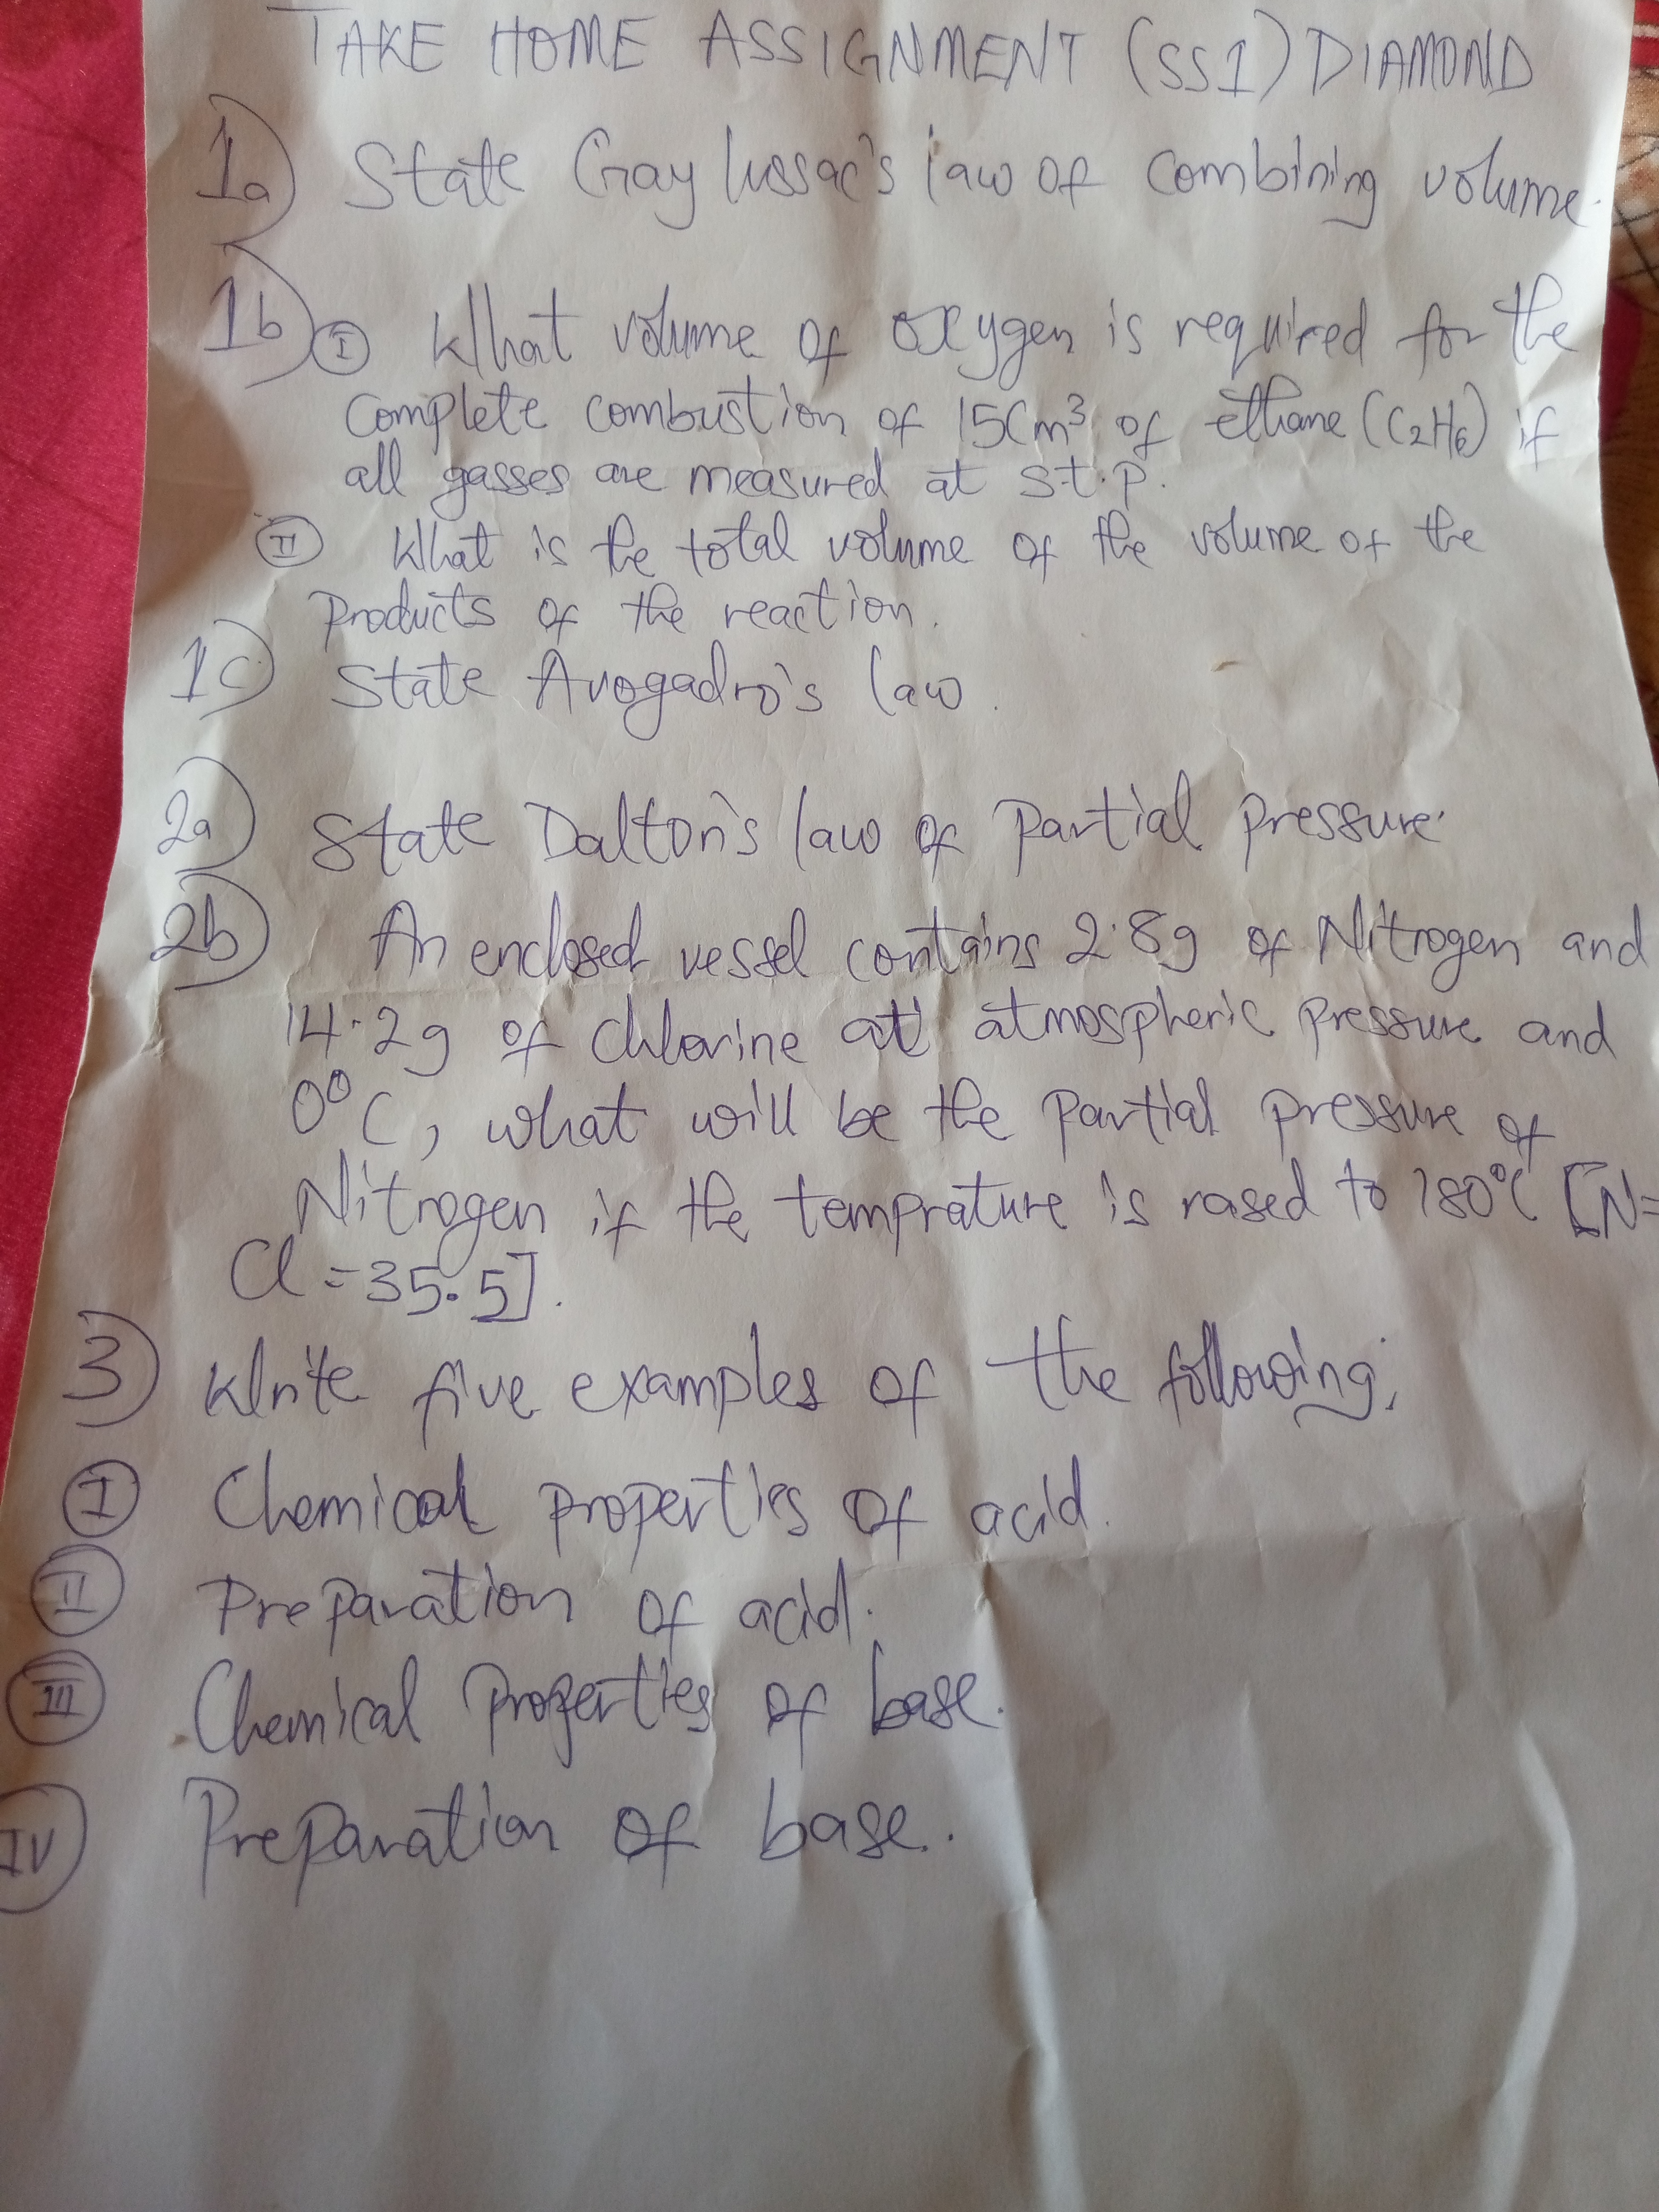 TAKE HOME ASSIGNMENT (SS1) DIAMOND
1a) State Gay lussac's law of combining volume.
1b) I What volume of oxygen is required for the
complete combustion of 15Cm³ of ethane (C₂H₆) if
all gasses are measured at s.t.p.
II What is the total volume of the volume of the
products of the reaction.
1c) State Avogadro's law.
2a) State Dalton's law of partial pressure.
2b) An enclosed vessel contains 2.8g of Nitrogen and
14.2g of chlorine at atmospheric pressure and
0°C, what will be the partial pressure of
Nitrogen if the temprature is rased to 180°C [N=
Cl = 35.5].
3) Write five examples of the following;
I Chemical properties of acid.
II Preparation of acid.
III Chemical properties of base.
IV Preparation of base.